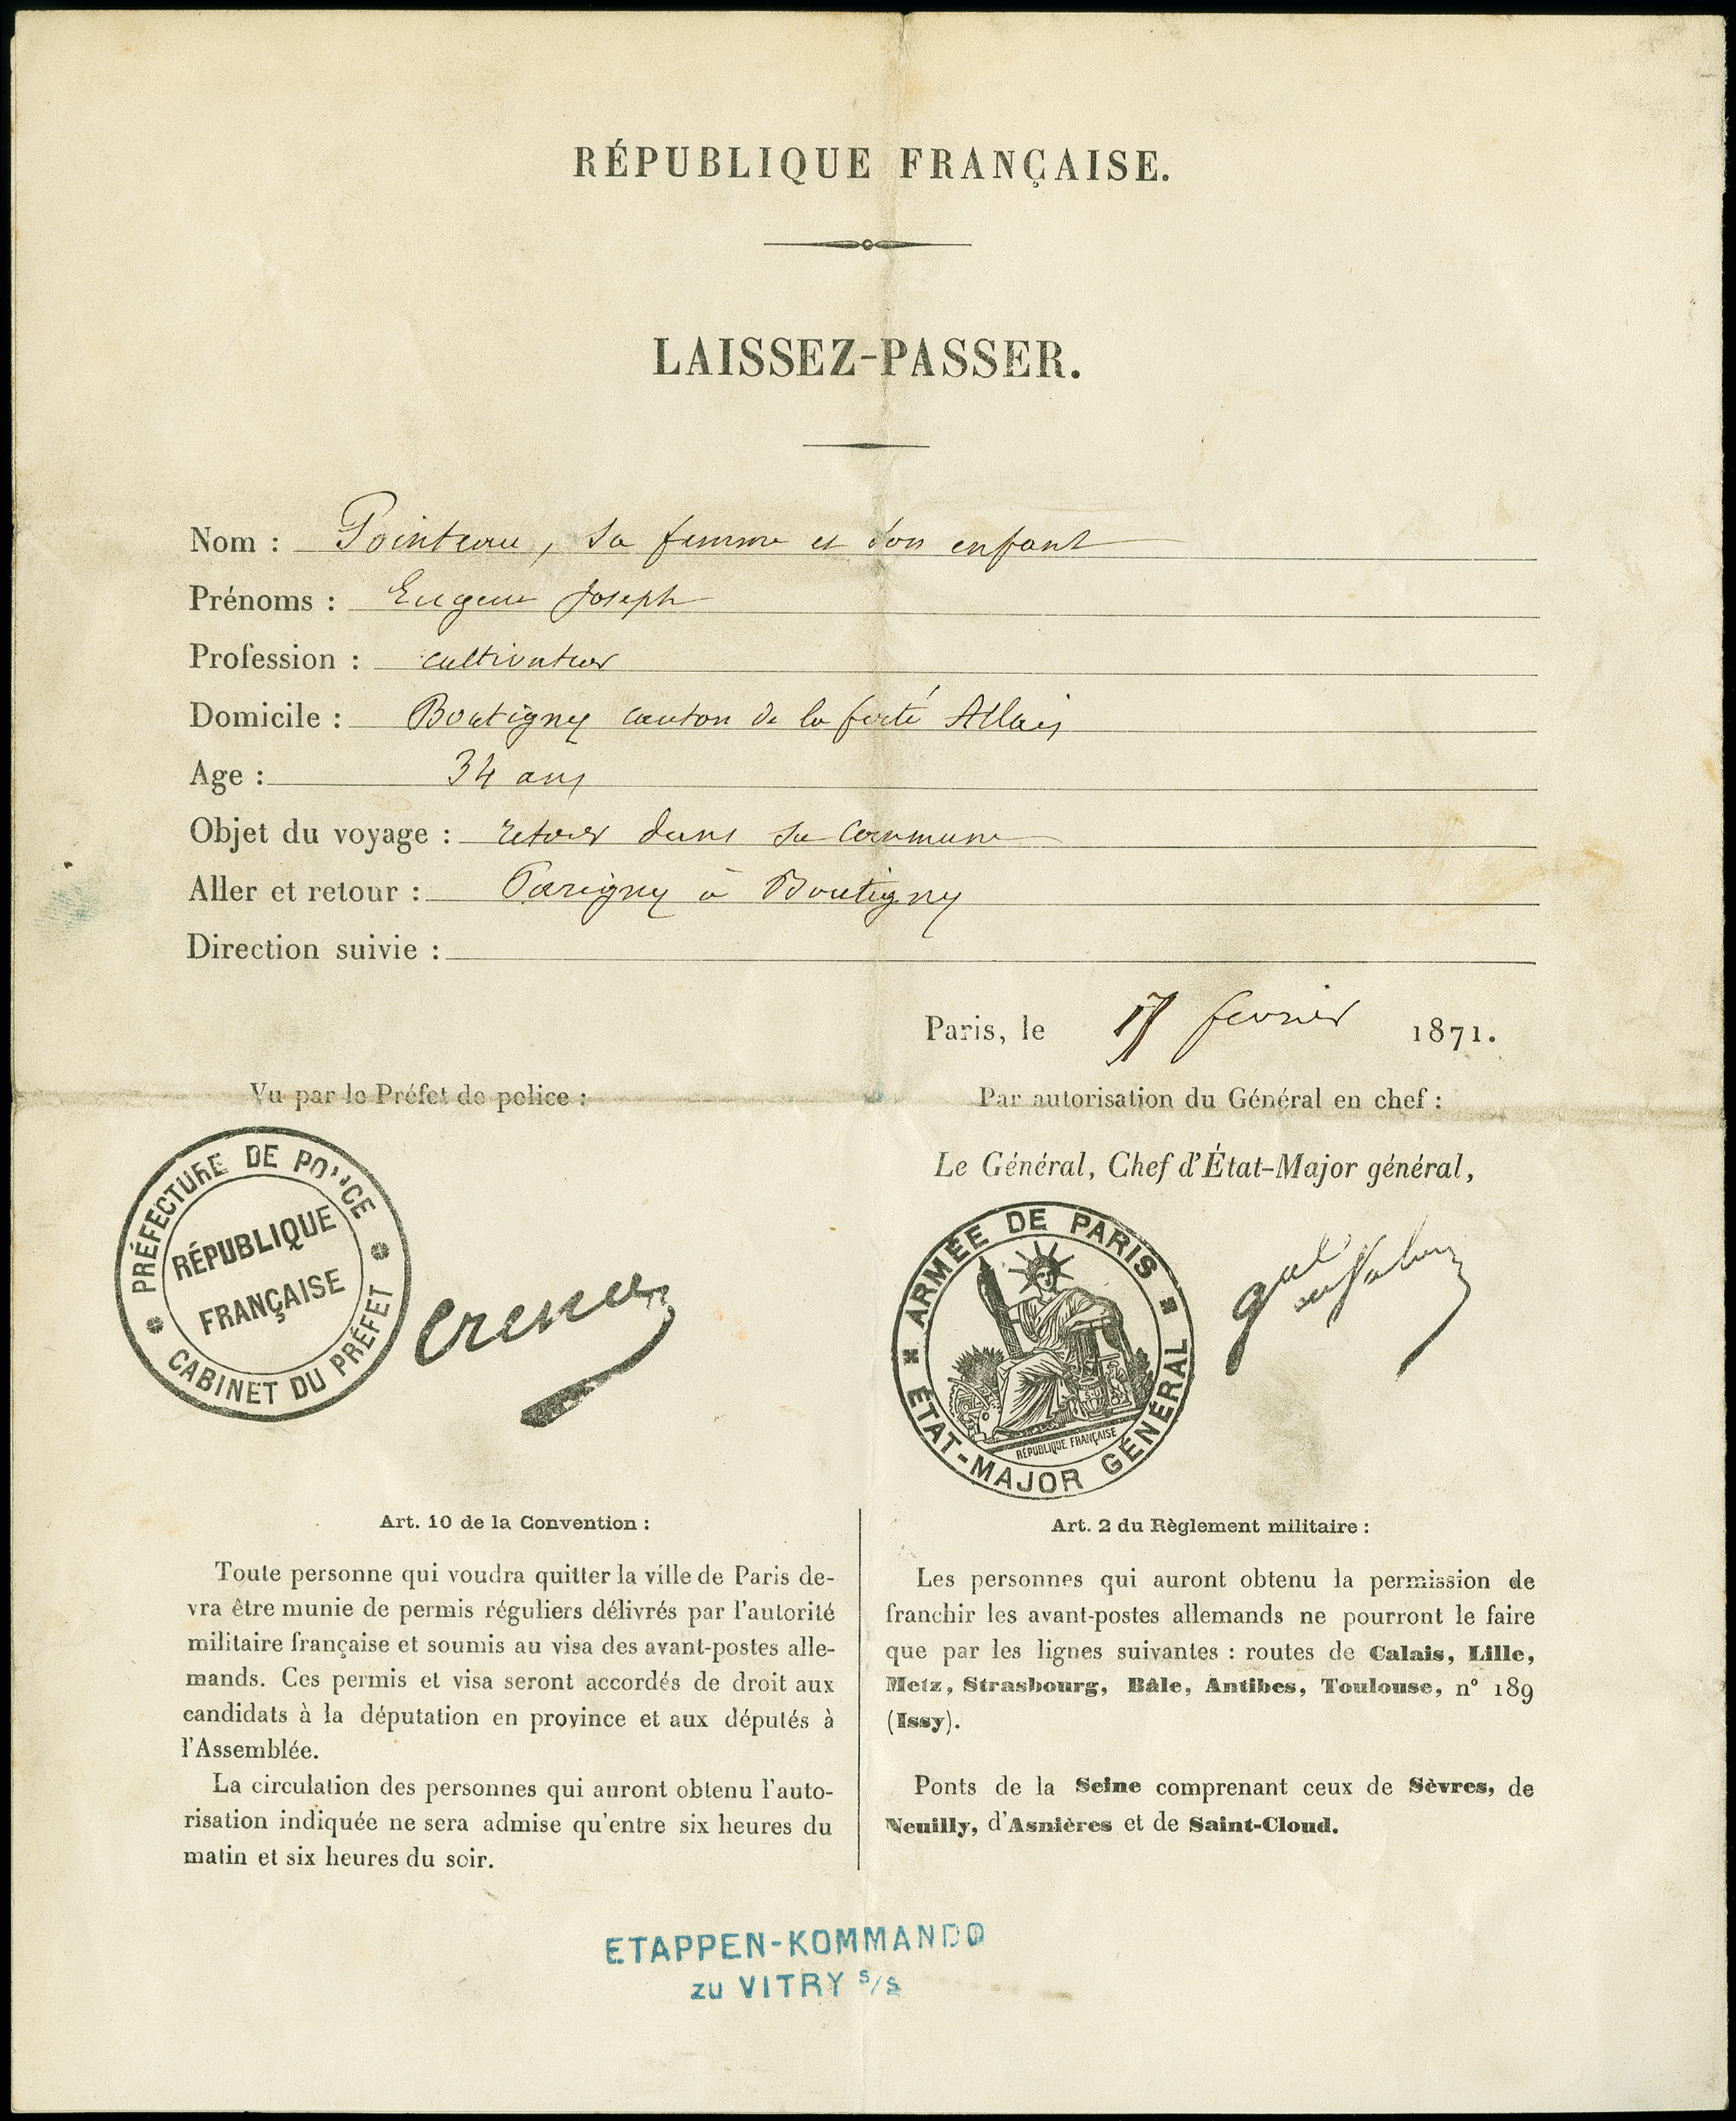 RÉPUBLIQUE FRANÇAISE.
LAISSEZ-PASSER.
Nom : Pointeau, sa femme et son enfant
Prénoms : Eugene Joseph
Profession : cultivateur
Domicile : Boutigny canton de la ferté Allais
Age : 34 ans
Objet du voyage : retour dans sa commune
Aller et retour : à Boutigny
Direction suivie :
Paris, le fevrier 1871.
Vu par le Préfet de police :
Par autorisation du Général en chef :
Le Général, Chef d'État-Major général,
PRÉFECTURE DE POLICE
RÉPUBLIQUE
FRANÇAISE
CABINET DU PRÉFET
ARMÉE DE PARIS
RÉPUBLIQUE FRANÇAISE
ÉTAT-MAJOR GÉNÉRAL
Art. 10 de la Convention :
Toute personne qui voudra quitter la ville de Paris de-
vra être munie de permis réguliers délivrés par l'autorité
militaire française et soumis au visa des avant-postes alle-
mands. Ces permis et visa seront accordés de droit aux
candidats à la députation en province et aux députés à
l'Assemblée.
La circulation des personnes qui auront obtenu l'auto-
risation indiquée ne sera admise qu'entre six heures du
matin et six heures du soir.
Art. 2 du Règlement militaire :
Les personnes qui auront obtenu la permission de
franchir les avant-postes allemands ne pourront le faire
que par les lignes suivantes : routes de Calais, Lille,
Metz, Strasbourg, Bâle, Antibes, Toulouse, n° 189
(Issy).
Ponts de la Seine comprenant ceux de Sèvres, de
Neuilly, d'Asnières et de Saint-Cloud.
ETAPPEN-KOMMANDO
zu VITRY s/s